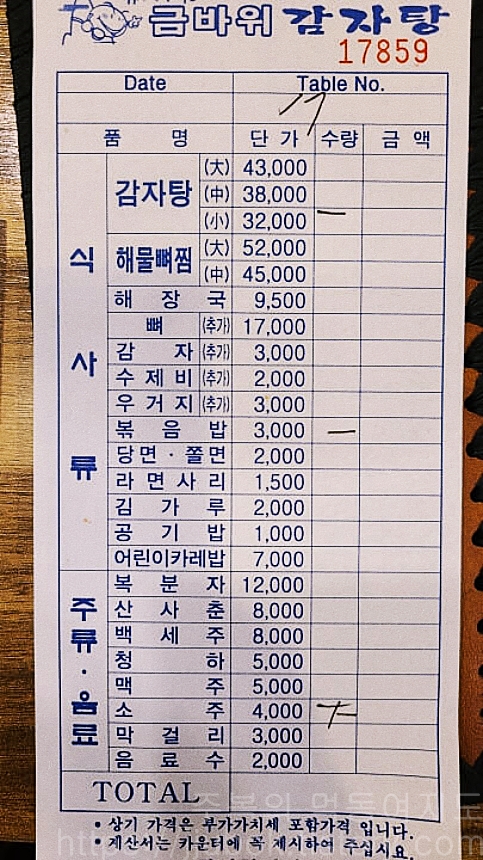 금바위 감자탕
17859
Date Table No.
17
품 명 단 가 수량 금 액
식사류
감자탕 (大) 43,000
(中) 38,000
(小) 32,000 一
해물뼈찜 (大) 52,000
(中) 45,000
해 장 국 9,500
뼈 (추가) 17,000
감 자 (추가) 3,000
수 제 비 (추가) 2,000
우 거 지 (추가) 3,000
볶 음 밥 3,000 一
당면 · 쫄면 2,000
라 면 사 리 1,500
김 가 루 2,000
공 기 밥 1,000
어린이카레밥 7,000
주류·음료
복 분 자 12,000
산 사 춘 8,000
백 세 주 8,000
청 하 5,000
맥 주 5,000
소 주 4,000 ㅜ
막 걸 리 3,000
음 료 수 2,000
TOTAL
• 상기 가격은 부가가치세 포함가격 입니다.
• 계산서는 카운터에 꼭 제시하여 주십시요